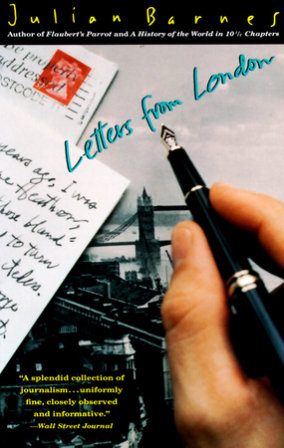 Julian Barnes
Author of Flaubert's Parrot and A History of the World in 10½ Chapters
be properly
addressed
POSTCODE
Letters from London
ago, I was
those bland
to turn
"A splendid collection of
journalism...uniformly
fine, closely observed
and informative."
—Wall Street Journal